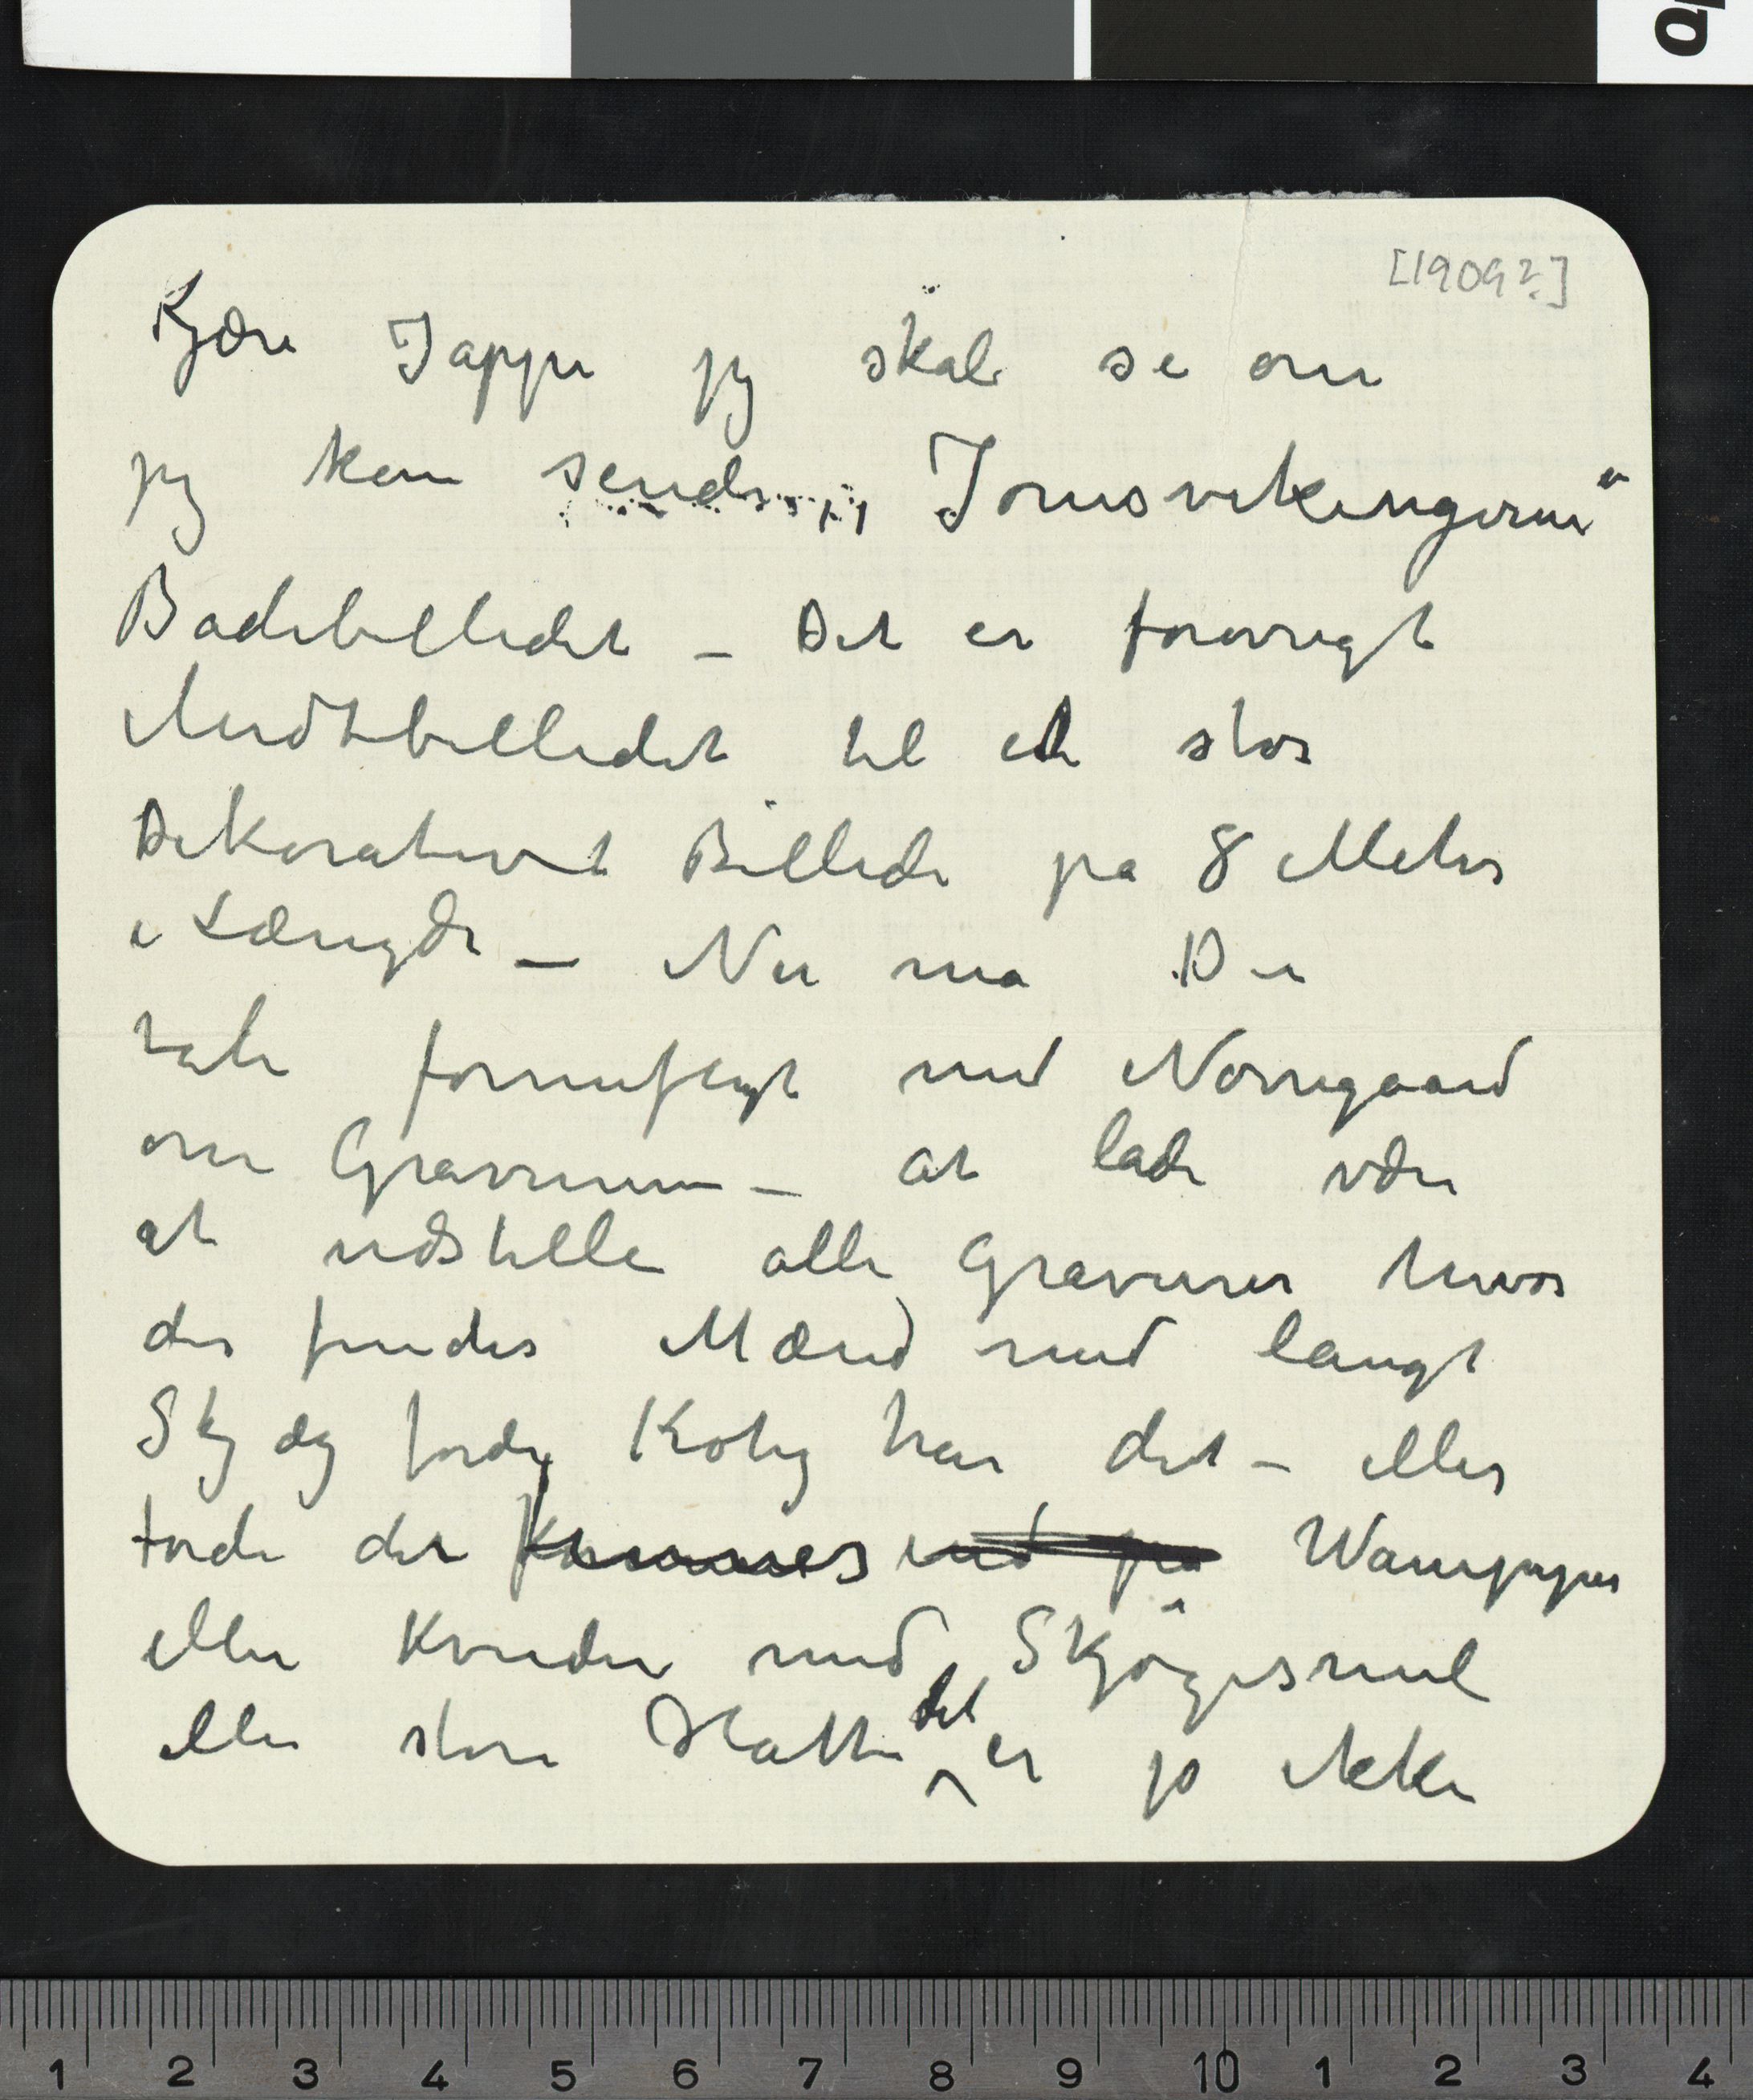 [1909?]
Kjære Jappe jeg skal se om
jeg kan sende „Jomsvikingerne"
Badebilledet – Det er forøvrigt
Midtbilledet til et stor
Dekorativt Billede på 8 Meter
i Længde – Nu må Du
tale fornuftigt med Nørregaard
om Gravurerne – at lade være
at udstille alle Gravurer hvor
der findes Mænd med langt
Skjæg fordi Koty har det – eller
fordi der findes ind på Vampyrer
eller Kvinder med Skjøgesmil
eller store Hatte det er jo ikke